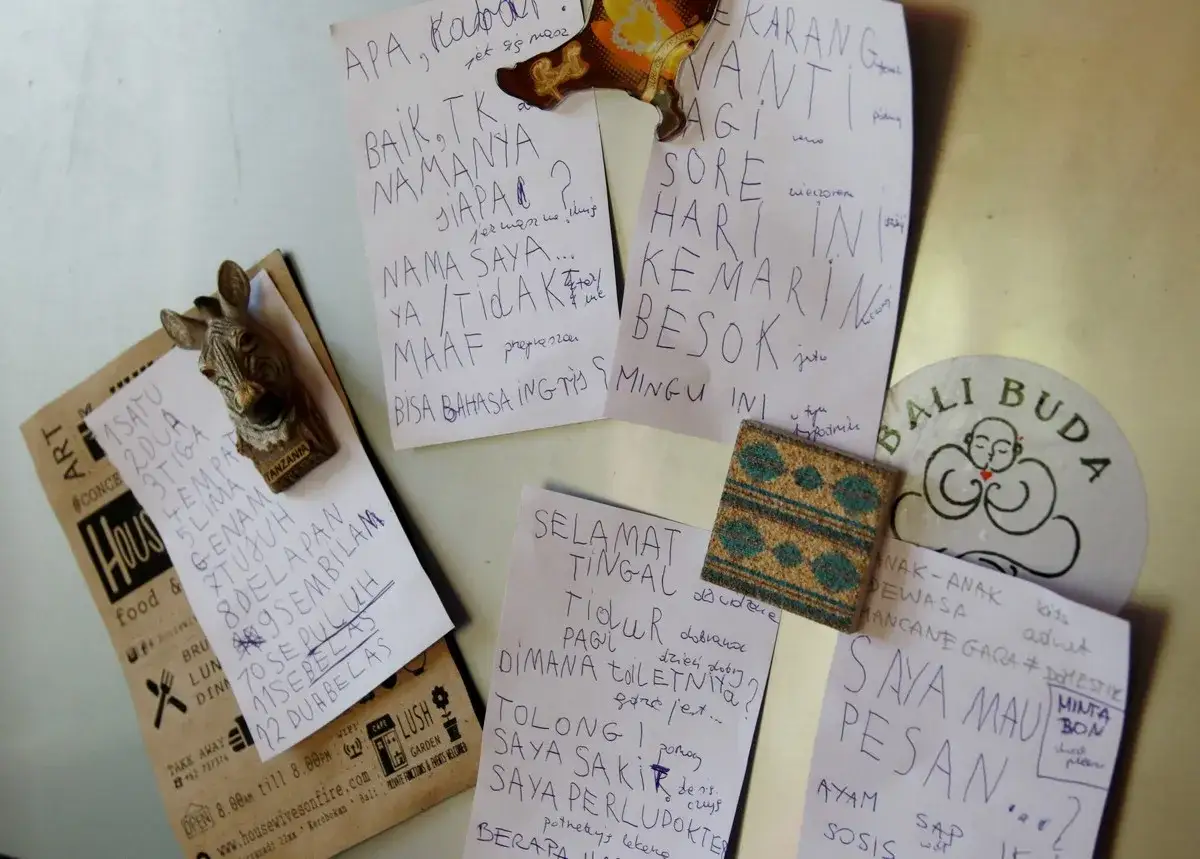 APA, Kabar?
jak się masz
BAIK, TK
NAMANYA
SIAPA ?
NAMA SAYA...
YA / TIDAK
MAAF przepraszam
BISA BAHASA INGTIS ?
EKARANG
NANTI
AGI rano
SORE wieczorem
HARI INI
KEMARIN
BESOK jutro
MINGU INI
w tym
tygodniu
ART
#CONCE
HOUS
food &
BRU
LUN
DINN
TAKE AWAY
OPEN 8.00am till 8.00pm
WIFI
CAFE
LUSH
GARDEN
PRIVATE FUNCTIONS & EVENTS WELCOMED
www.housewivesonfire.com
Kerobokan - Bali
TANZANIA
1 SATU
2 DUA
3 TIGA
4 EMPAT
5 LIMA
6 ENAM
7 TUJUH
8 DELAPAN
9 SEMBILAN
10 SEPULUH
11 SEBELAS
12 DUABELAS
SELAMAT
TINGAL do widzenia
TIDUR dobranoc
PAGI dzień dobry
DIMANA toiLETNYA ?
gdzie jest...
TOLONG ! pomocy
SAYA SAKIT
SAYA PERLU DOKTER
potrzebuję lekarza
BERAPA
BALI BUDA
NAK-ANAK
DEWASA
MANCANEGARA ≠ DOMESTIK
SAYA MAU
PESAN ... ?
MINTA
BON
AYAM
SAPI
SOSIS